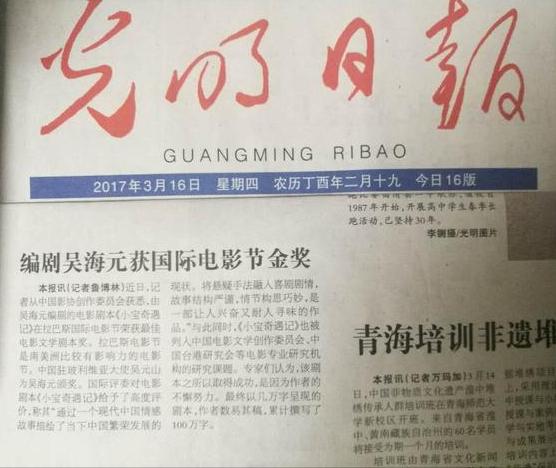 光明日报
GUANGMING RIBAO
2017年3月16日 星期四 农历丁酉年二月十九 今日16版
1987年开始，开展高中学生春季长
跑活动，已坚持30年。
李钢摄/光明图片
编剧吴海元获国际电影节金奖
本报讯（记者鲁博林）近日，记
者从中国影协创作委员会获悉，由
吴海元编剧的电影剧本《小宝奇遇
记》在拉巴斯国际电影节荣获最佳
电影文学剧本奖。拉巴斯电影节
是南美洲比较有影响力的电影
节。中国驻玻利维亚大使吴元山
为吴海元颁奖。国际评委对电影
剧本《小宝奇遇记》给予了高度评
价，称其“通过一个现代中国情感
故事描绘了当下中国繁荣发展的
现状。将悬疑手法融入喜剧剧情，
故事结构严谨，情节构思巧妙，是
一部让人兴奋又耐人寻味的作
品。”与此同时，《小宝奇遇记》也被
列入中国电影文学创作委员会、中
国台港研究会等电影专业研究机
构的研究课题。专家们认为，该剧
本之所以取得成功，是因为作者的
不懈努力。最终以几万字呈现的
剧本，作者数易其稿，累计撰写了
100万字。
青海培训非遗堆
本报讯（记者万玛加）3月14
日，中国非物质文化遗产湟中堆
绣传承人群培训班在青海师范大
学新校区开班。来自青海省湟
中、黄南藏族自治州的60名学员
将接受为期一个月的培训。
培训班由青海省文化新闻